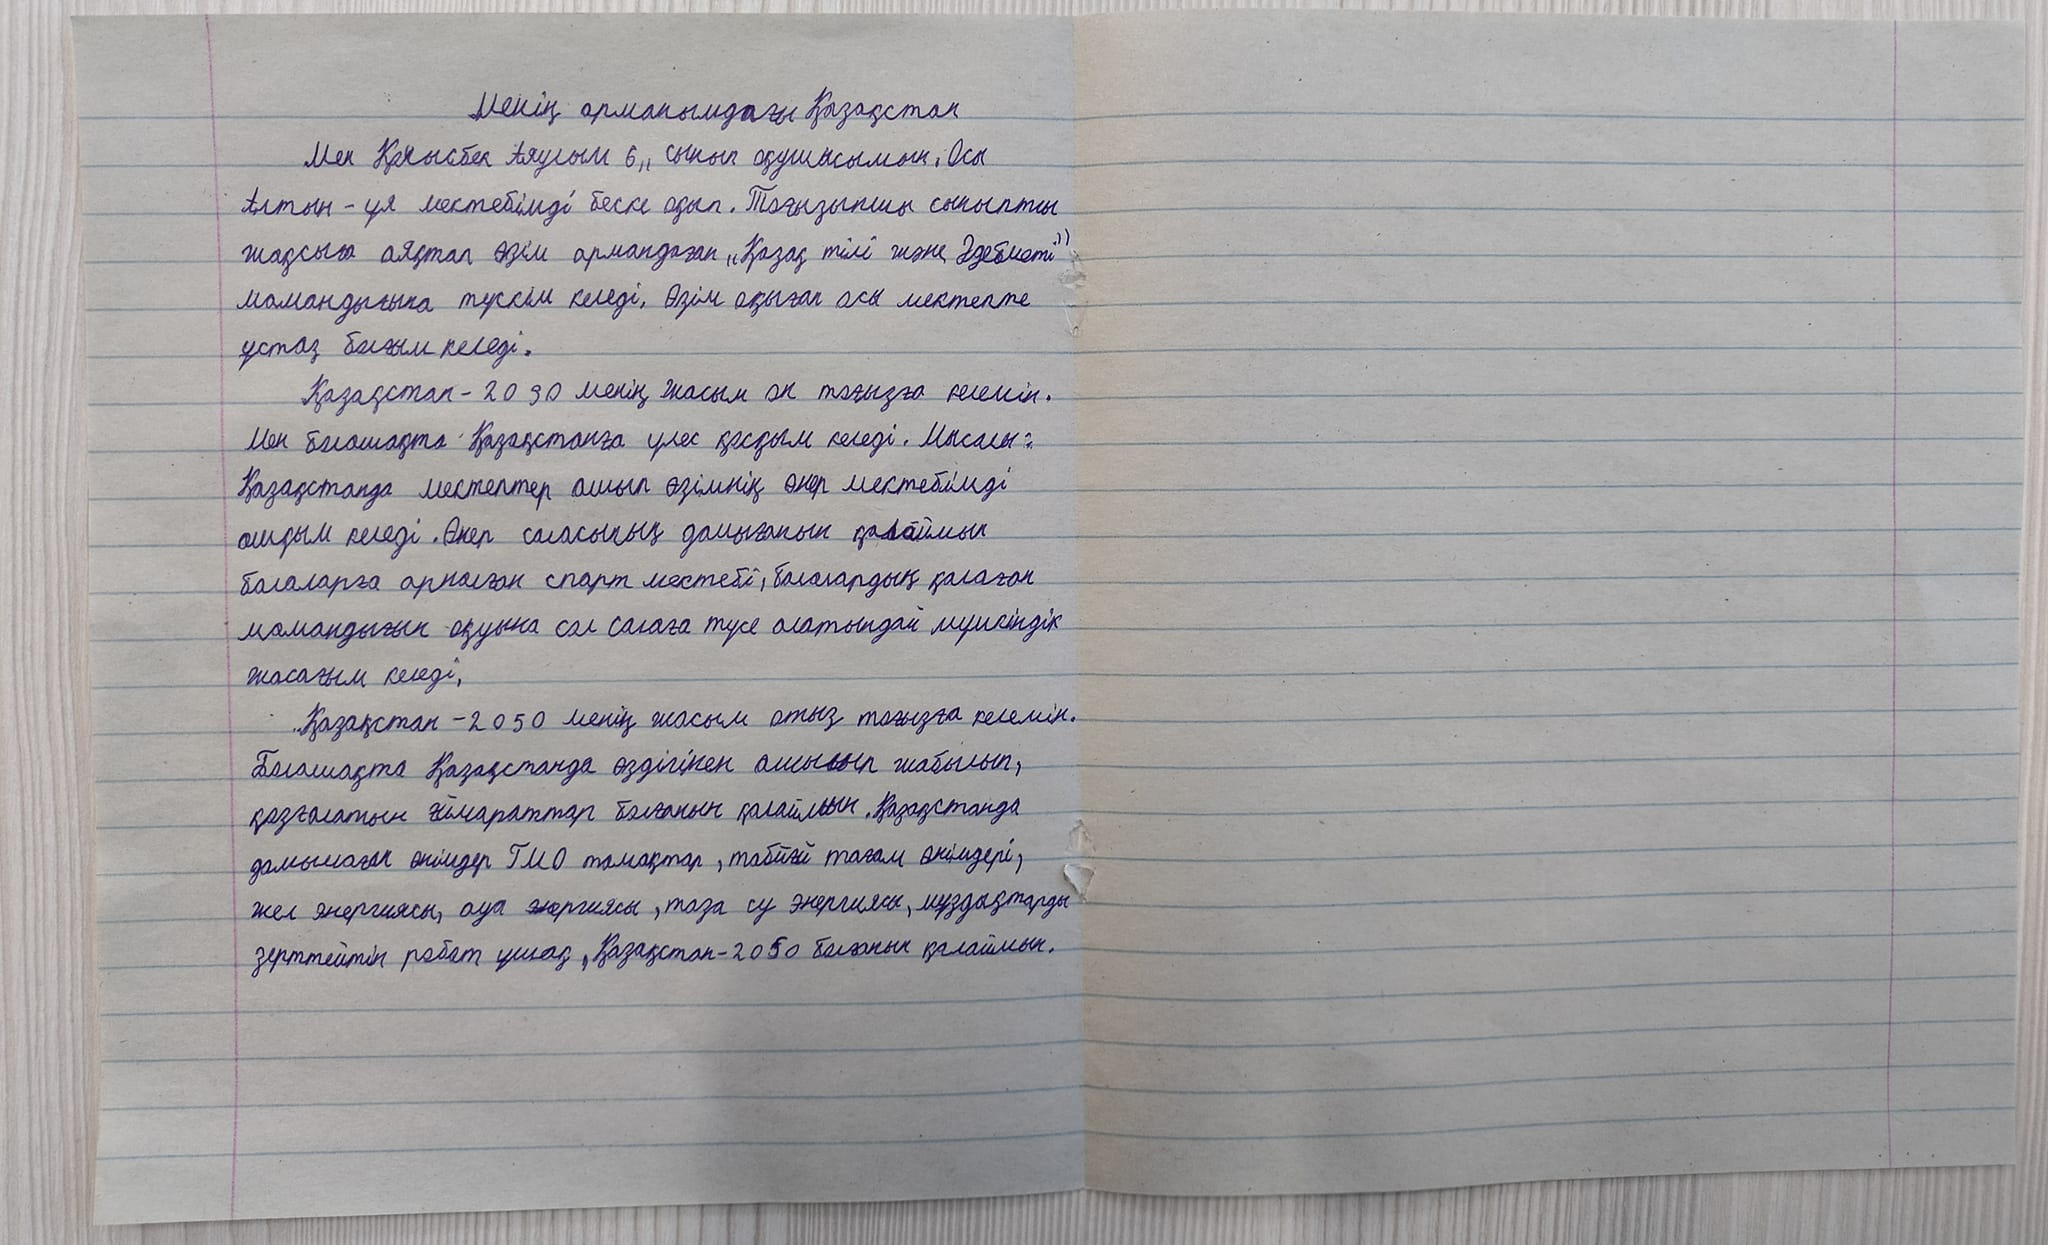 Менің арманымдағы Қазақстан
Мен Қанысбек Аяулым 6,, сынып оқушысымын. Осы
Алтын-ұя мектебімді беске оқып. Тоғызыншы сыныпты
жақсыға аяқтап өзім армандаған „Қазақ тілі және Әдебиеті"
мамандығына түскім келеді. Өзім оқыған осы мектепте
ұстаз болғым келеді.
Қазақстан-2030 менің жасым он тоғызға келемін.
Мен болашақта Қазақстанға үлес қосқым келеді. Мысалы:
Қазақстанда мектептер ашып өзімнің өнер мектебімді
ашқым келеді. Өнер саласының дамығанын қалаймын
балаларға арналған спорт мектебі, балалардың қалаған
мамандығын оқуына сол салаға түсе алатындай мүмкіндік
жасағым келеді,
Қазақстан-2050 менің жасым отыз тоғызға келемін.
Болашақта Қазақстанда өздігінен ашылып жабылып,
қозғалатын ғймараттар болғанын қалаймын. Қазақстанда
дамымаған өнімдер ГМО тамақтар, табиғй тағам өнімдері,
жел энергиясы, ауа энергиясы, таза су энергиясы, мұздықтарды
зерттейтін робот ұшақ, Қазақстан-2050 болғанын қалаймын.